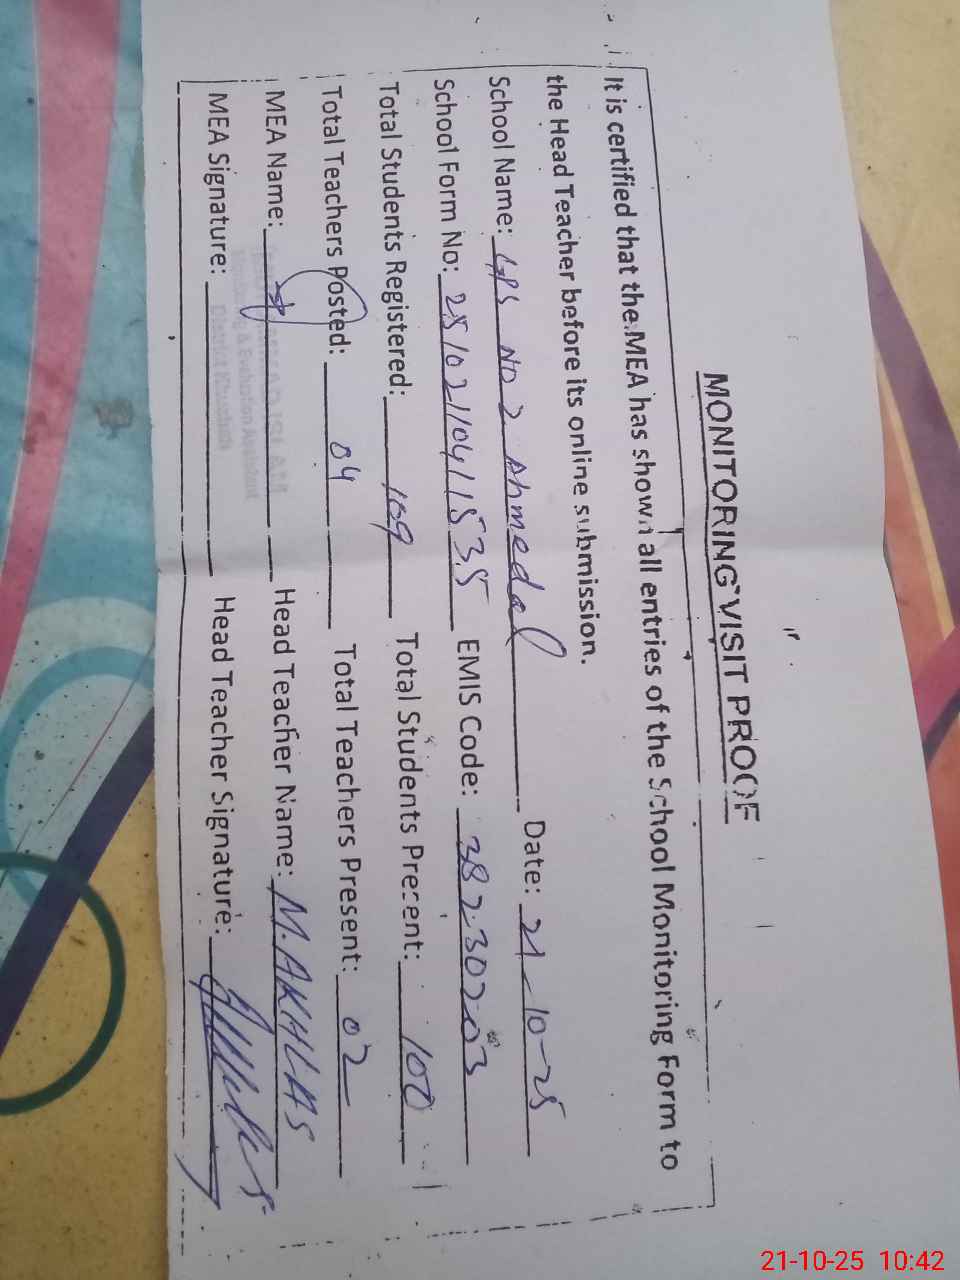 MONITORING VISIT PROOF
It is certified that the MEA has shown all entries of the School Monitoring Form to
the Head Teacher before its online submission.
School Name: GPS NO 2 Ahmedal Date: 21-10-25
School Form No: 251021104115535 EMIS Code: 38230203
Total Students Registered: 109 Total Students Present: 100
Total Teachers Posted: 04 Total Teachers Present: 02
MEA Name: Head Teacher Name: M. AKHLAS
MEA Signature: Head Teacher Signature:
Monitoring & Evaluation Assistant
District Khushab
21-10-25 10:42